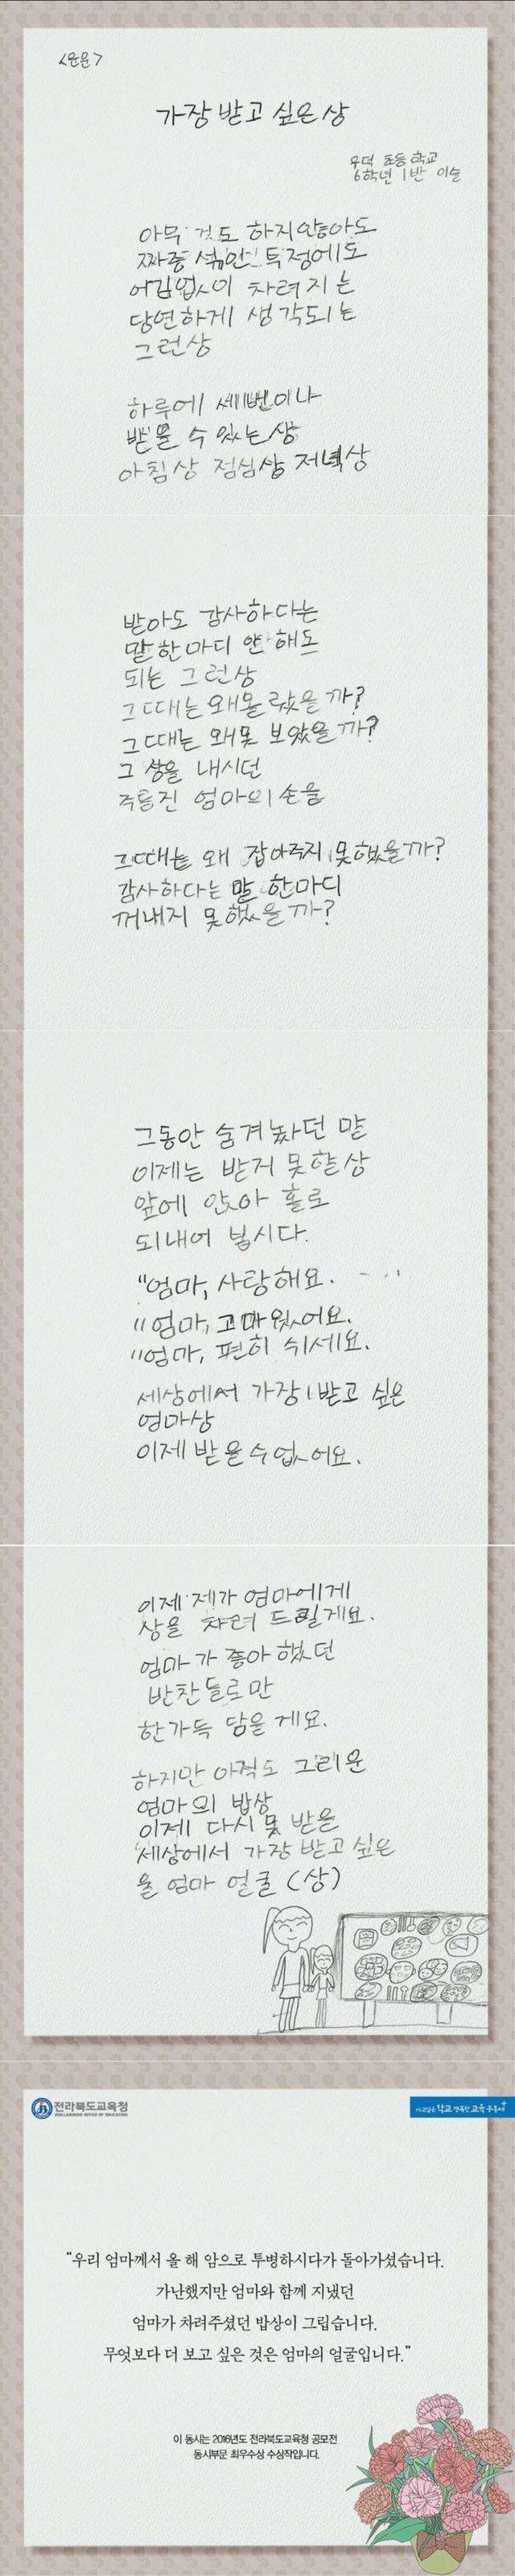 <운문>
가장 받고 싶은 상
우덕 초등학교
6학년 1반 이슬
아무 것도 하지않아도
짜증 섞인 투정에도
어김없이 차려지는
당연하게 생각되는
그런상
하루에 세번이나
받을 수 있는상
아침상 점심상 저녁상
받아도 감사하다는
말 한마디 안 해도
되는 그런상
그때는 왜 몰랐을까?
그때는 왜 못 보았을까?
그 상을 내시던
주름진 엄마의 손을
그때는 왜 잡아주지 못했을까?
감사하다는 말 한마디
꺼내지 못했을까?
그동안 숨겨놨던 말
이제는 받지 못할상
앞에 앉아 홀로
되내어 봅시다.
"엄마, 사랑해요.
"엄마, 고마웠어요.
"엄마, 편히 쉬세요.
세상에서 가장 받고 싶은
엄마상
이제 받을 수 없어요.
이제 제가 엄마에게
상을 차려 드릴게요.
엄마가 좋아했던
반찬들로만
한가득 담을게요.
하지만 아직도 그리운
엄마의 밥상
이제 다시 못 받을
세상에서 가장 받고 싶은
울 엄마 얼굴 (상)
전라북도교육청
JEOLLABUKDO OFFICE OF EDUCATION
가고싶은 학교 행복한 교육공동체
“우리 엄마께서 올 해 암으로 투병하시다가 돌아가셨습니다.
가난했지만 엄마와 함께 지냈던
엄마가 차려주셨던 밥상이 그립습니다.
무엇보다 더 보고 싶은 것은 엄마의 얼굴입니다.”
이 동시는 2016년도 전라북도교육청 공모전
동시부문 최우수상 수상작입니다.